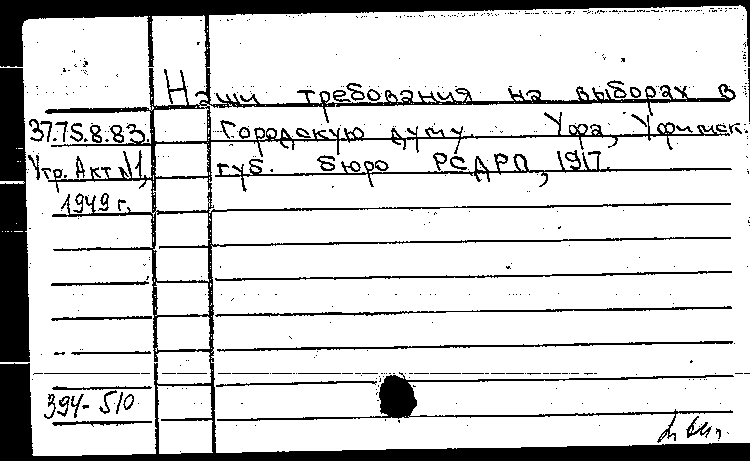 Наши требования на выборах в
37.75.8.83. Городскую думу. Уфа, Уфимск.
Утр. Акт №1, губ. бюро РСДРП, 1917.
1949 г.
394-510